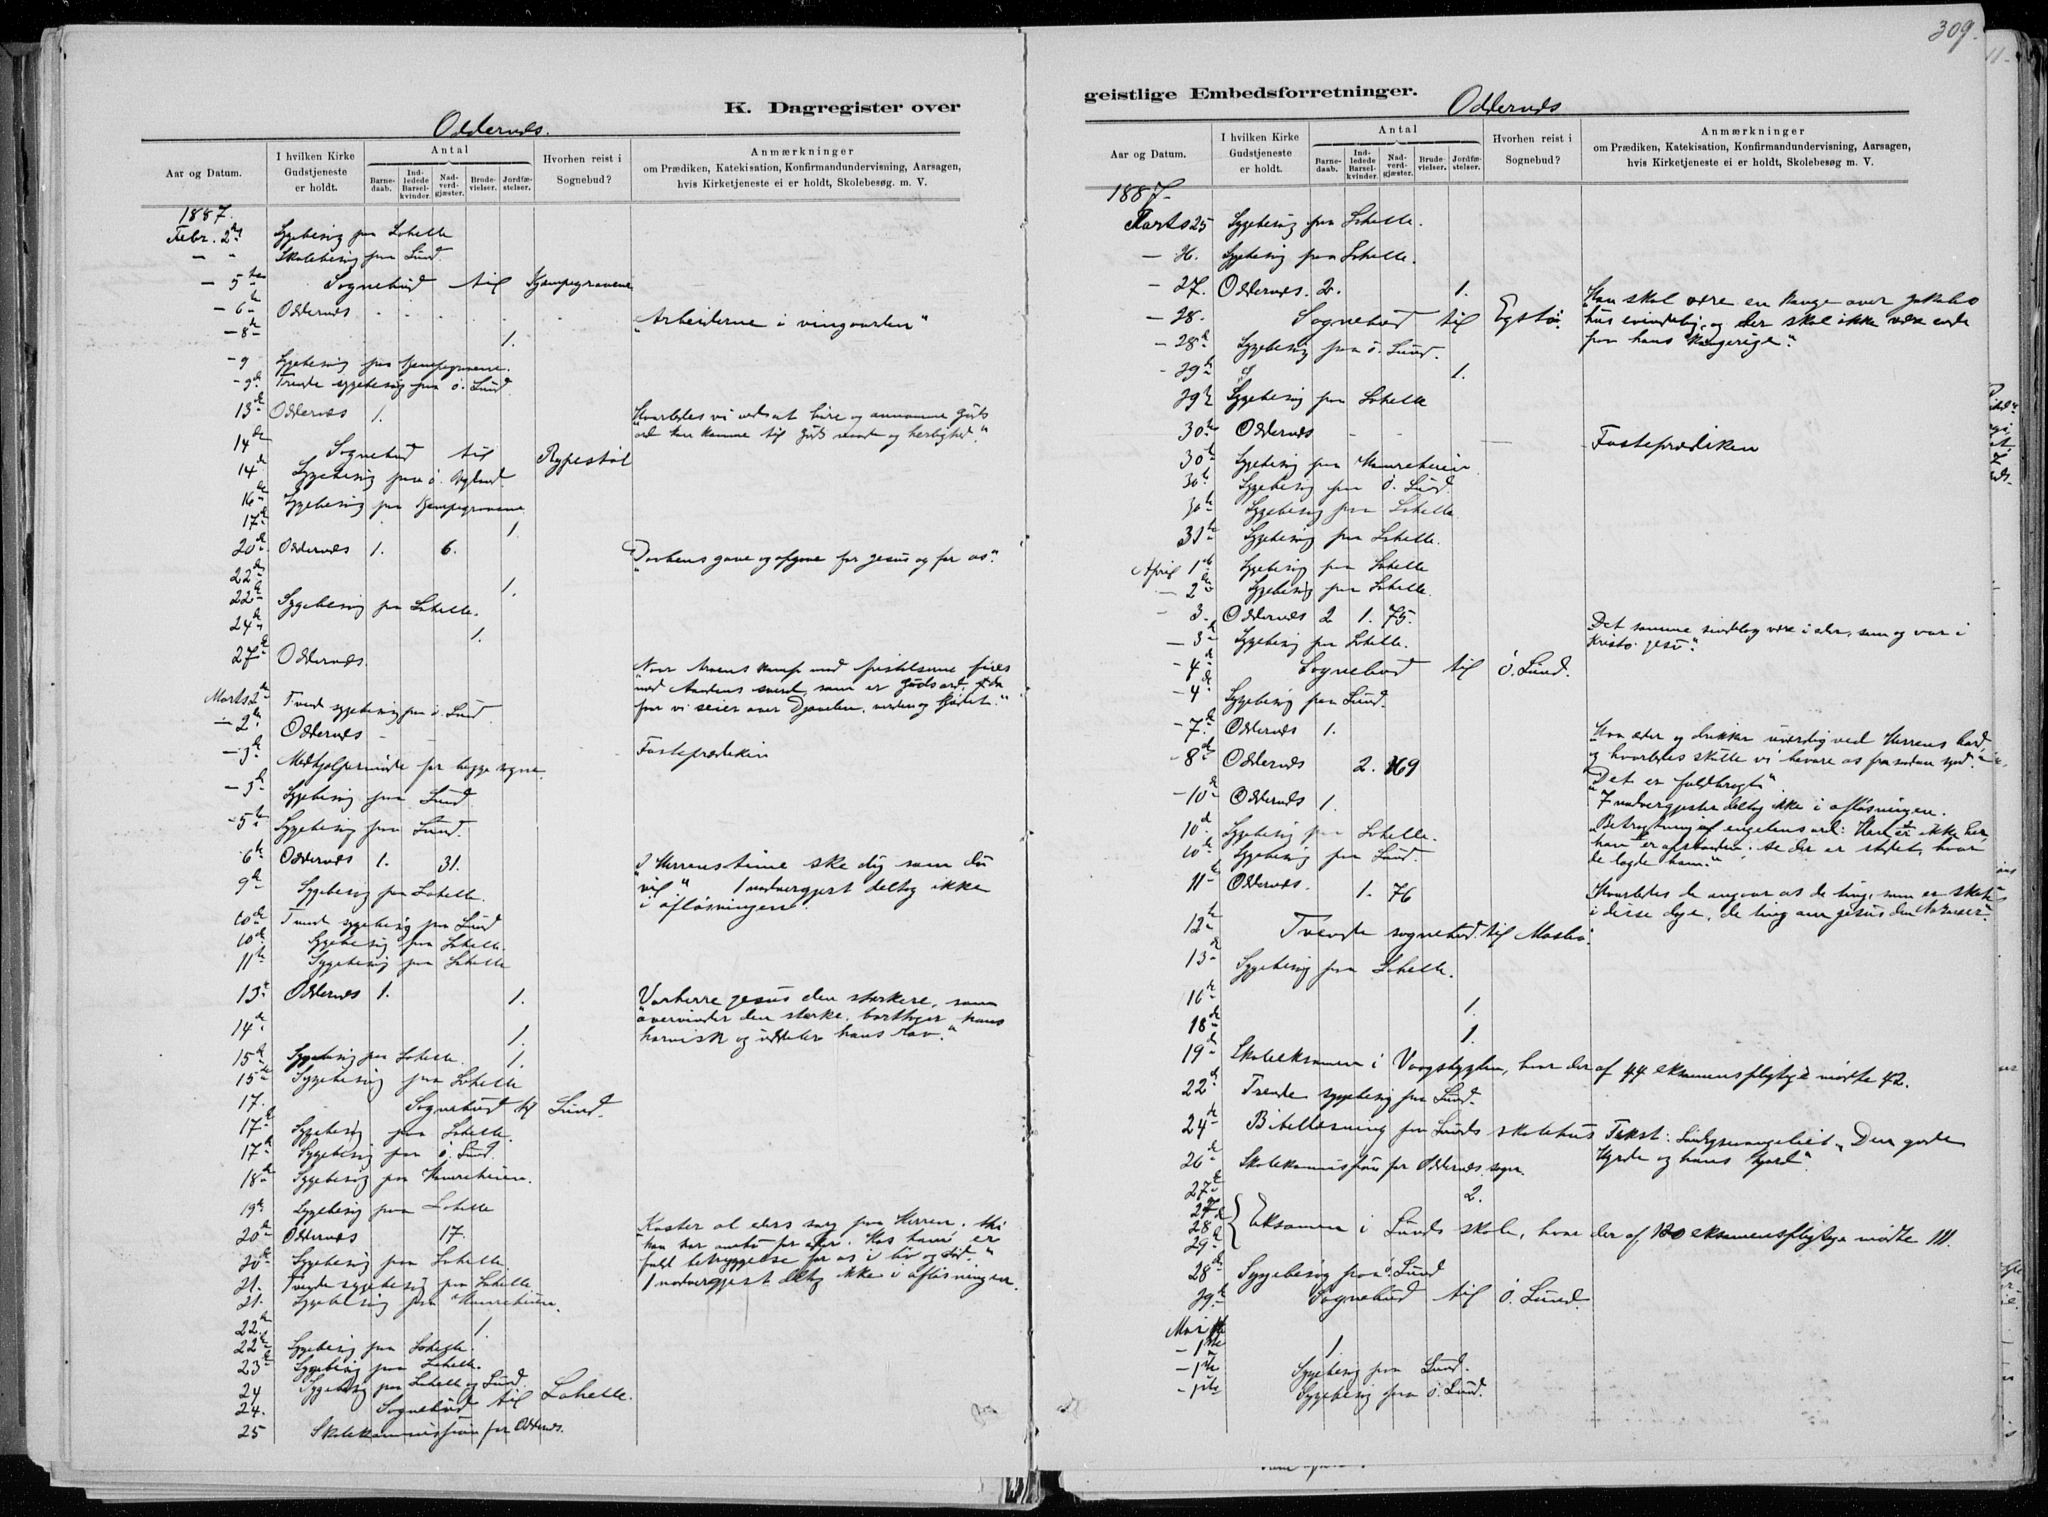 309.
K. Dagregister over
Oddernes.
Aar og Datum.
I hvilken Kirke Gudstjeneste er holdt.
Antal
Barnedaab.
Indledede Barselkvinder.
Nadverdgjæster.
Brudevielser.
Jordfæstelser.
Hvorhen reist i Sognebud?
Anmærkninger
om Prædiken, Katekisation, Konfirmandundervisning, Aarsagen,
hvis Kirketjeneste ei er holdt, Skolebesøg. m. V.
1887.
Febr. 2den Sygebesøg paa Lohelle
— " Skolebesøg paa Lund.
— 5te Sognebud til Kjempegravene
— 6te Oddernes - - - - - "Arbeiderne i vingaarden"
— 8de 1.
— 9 Sygebesøg paa Kjempegravene.
— 9de Trende sygebesøg paa ø. Lund.
13de Oddernes 1. "Hvorledes vi ved at høre og annamme Guds
ord kan komme til Guds rende og herlighed."
14de Sognebud til Rypestøl
14de Sygebesøg paa ø. Vegland.
16de Sygebesøg paa Kjempegravene
17de 1.
20de Oddernes 1. 6. "Daabens gave og opgave for Jesus og for os."
22de 1.
22de Sygebesøg paa Lohelle.
24de 1.
27de Oddernes. "Naar troens kamp mod fristelserne føres
med Aandens sverd, som er Guds ord, da
faar vi seier over Djævelen, verden og kjødet."
Marts 2de Tvende sygebesøg paa ø. Lund
— 2den Oddernes - - Fasteprædiken
— 3de Medhjælpermøde for begge sogne.
— 3de Sygebesøg paa Lund.
— 5te Sygebesøg paa Lund.
6te Oddernes 1. 31. "I Herrens time ske dig som du
vil" 1 nadvergjest deltog ikke
i afløsningen.
9de Sygebesøg paa Lohelle.
10de Tvende sygebesøg paa Lund
10de Sygebesøg paa Lohelle.
11te Sygebesøg paa Lohelle
13de Oddernes 1. 1. "Vorherre Jesus den sterkere, som
overvinder den sterke, borttager hans
harnisk og uddeler hans rov."
14de 1.
15de Sygebesøg paa Lohelle. 1.
15de Sygebesøg paa Lohelle
17. Sognebud til Lund.
17de Sygebesøg paa Lohelle.
17de Sygebesøg paa ø. Lund.
18de Sygebesøg paa Hamreheien.
19de Sygebesøg paa Lohelle
20de Oddernes 17. "Kaster al eders sorg paa Herren, thi
han har omsorg for eder. Hos ham er
fuld betryggelse for os i liv og død."
1 nadvergjest deltog ikke i afløsningen.
20de Sygebesøg paa Lohelle.
21. Tvende sygebesøg paa Lohelle
21. Sygebesøg paa Hamreheien.
22de 1.
22de Sygebesøg paa Lohelle.
23de Sygebesøg paa Lohelle.
24 Sygebesøg paa Lohelle og Lund.
24. Sognebud til Lohelle.
25 Skolekommission for Oddernes.
geistlige Embedsforretninger.
Oddernes
Aar og Datum.
I hvilken Kirke Gudstjeneste er holdt.
Antal
Barnedaab.
Indledede Barselkvinder.
Nadverdgjæster.
Brudevielser.
Jordfæstelser.
Hvorhen reist i Sognebud?
Anmærkninger
om Prædiken, Katekisation, Konfirmandundervisning, Aarsagen,
hvis Kirketjeneste ei er holdt, Skolebesøg m. V.
1887.
Marts 25 Sygebesøg paa Lohelle.
— 26. Sygebesøg paa Lohelle.
— 27. Oddernes. 2. 1. "Han skal være en konge over Jakobs
hus evindelig, og der skal ikke være ende
paa hans kongerige."
— 28. Sognebud til Egstø.
— 28de Sygebesøg paa ø. Lund.
— 29de 1.
29de Sygebesøg paa Lohelle
30te Oddernes - - - Fasteprædiken
30te Sygebesøg paa Hamreheien
30te Sygebesøg paa ø. Lund.
30te Sygebesøg paa Lohelle
31te Sygebesøg paa Lohelle.
April 1ste Sygebesøg paa Lohelle
— 2den Sygebesøg paa Lohelle.
— 3. Oddernes 2 1. 75. "Det samme sindelag være i eder, som og var i
Kristo Jesu."
— 3de Sygebesøg paa Lohelle.
— 4de Sognebud til ø. Lund.
— 4de Sygebesøg paa Lund.
— 7de Oddernes 1. "Hvo æder og drikker uværdig ved Herrens bord,
og hvorledes skulle vi bevare os fra sodan synd."
— 8de Oddernes 2. 69 "Det er fuldbragt"
7 nadvergjester deltog ikke i afløsningen.
— 10de Oddernes 1. "Betragtning af engelens ord: Han er ikke her,
han er opstanden; se der er stedet, hvor
de lagde ham."
10de Sygebesøg paa Lohelle.
10de Sygebesøg paa Lund.
11te Oddernes. 1. 76 "Hvorledes de angaar os de ting, som er skete
i disse dage, de ting om Jesus den Nazaræer."
12te Tvende sognebud til Mosbø.
13de Sygebesøg paa Lohelle.
16de 1.
18de 1.
19de Skoleeksamen i Vaagsbygden, hvor der af 44 eksamenspligtige mødte 42.
22de Trende sygebesøg paa Lund.
24de Bibellæsning paa Lunds skolehus Tekst: Søndagsevangeliet "Den gode
Hyrde og hans hjord".
26de Skolekommission for Oddernes sogn.
27de 2.
27de
28de
29de Eksamen i Lunds skole, hvor der af 120 eksamenspligtige mødte 111.
28de Sygebesøg paa ø. Lund
29de Sognebud til ø. Lund.
Mai
— 1ste 1.
— 1ste Sygebesøg paa Lund.
— 1ste Sygebesøg paa ø. Lund.